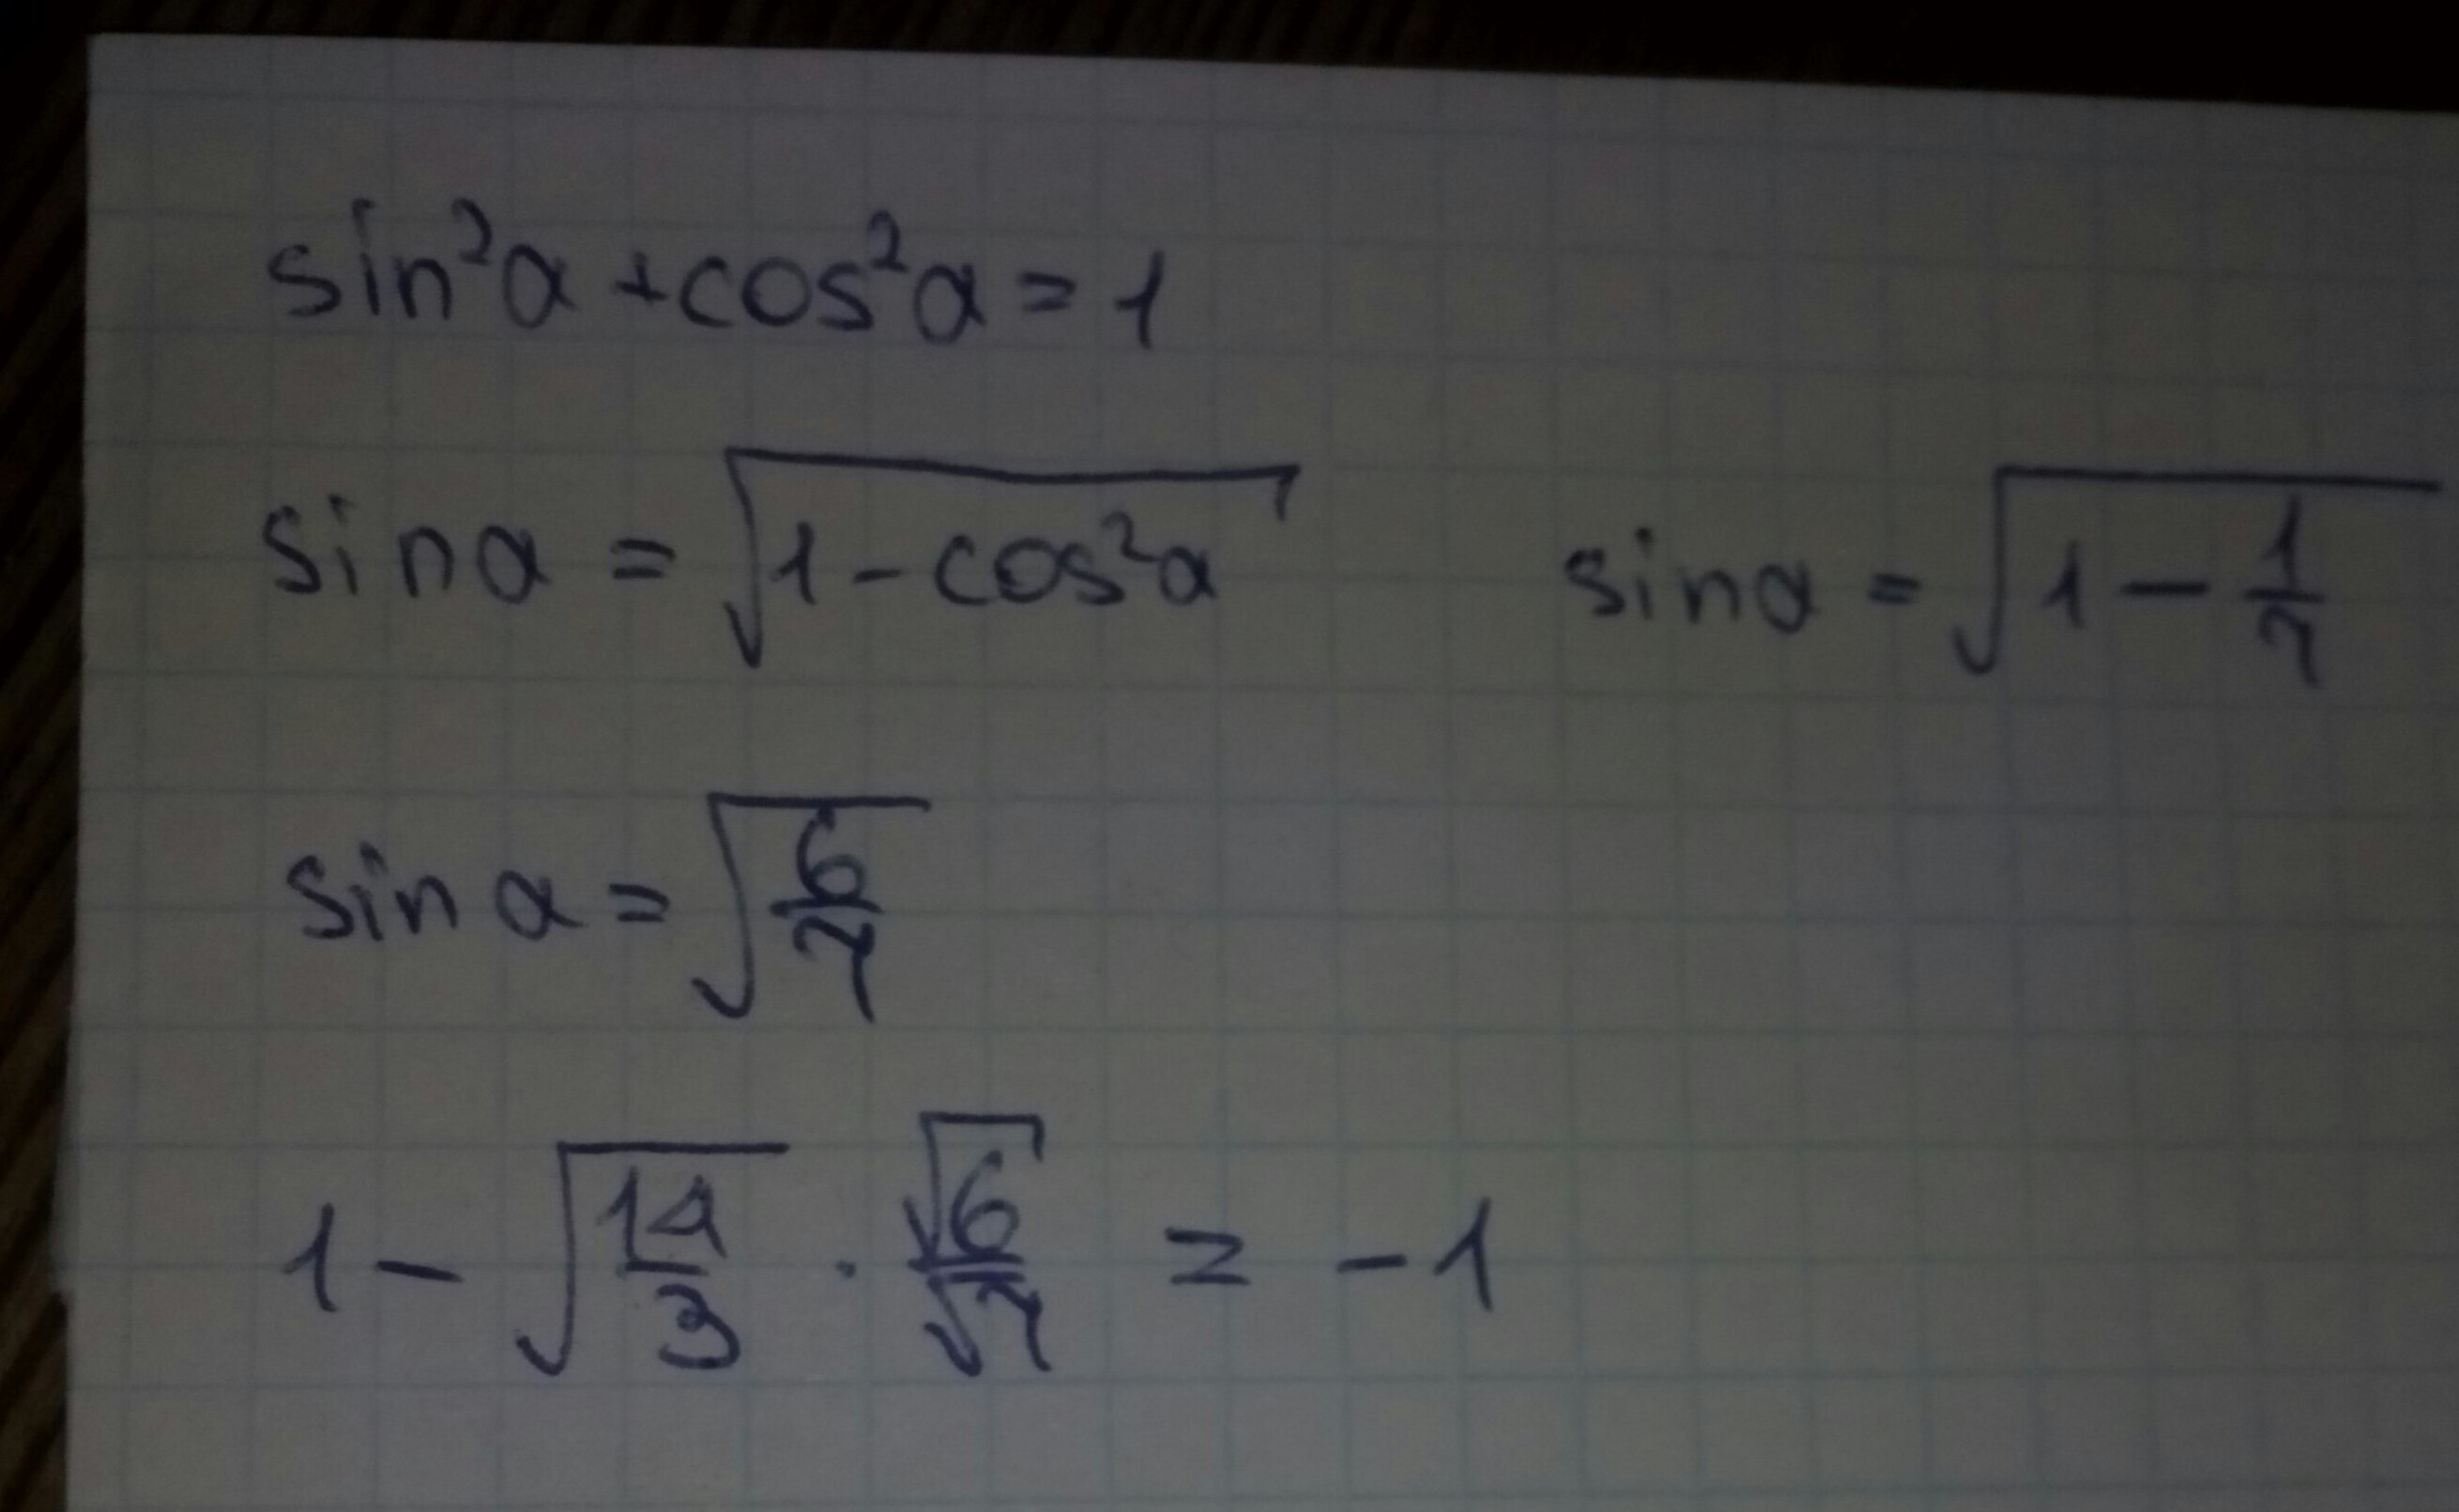 sin²α + cos²α = 1
sinα = √(1 - cos²α)    sinα = √(1 - 1/7)
sin α = √(6/7)
1 - √(14/3) · √6/√7 = -1